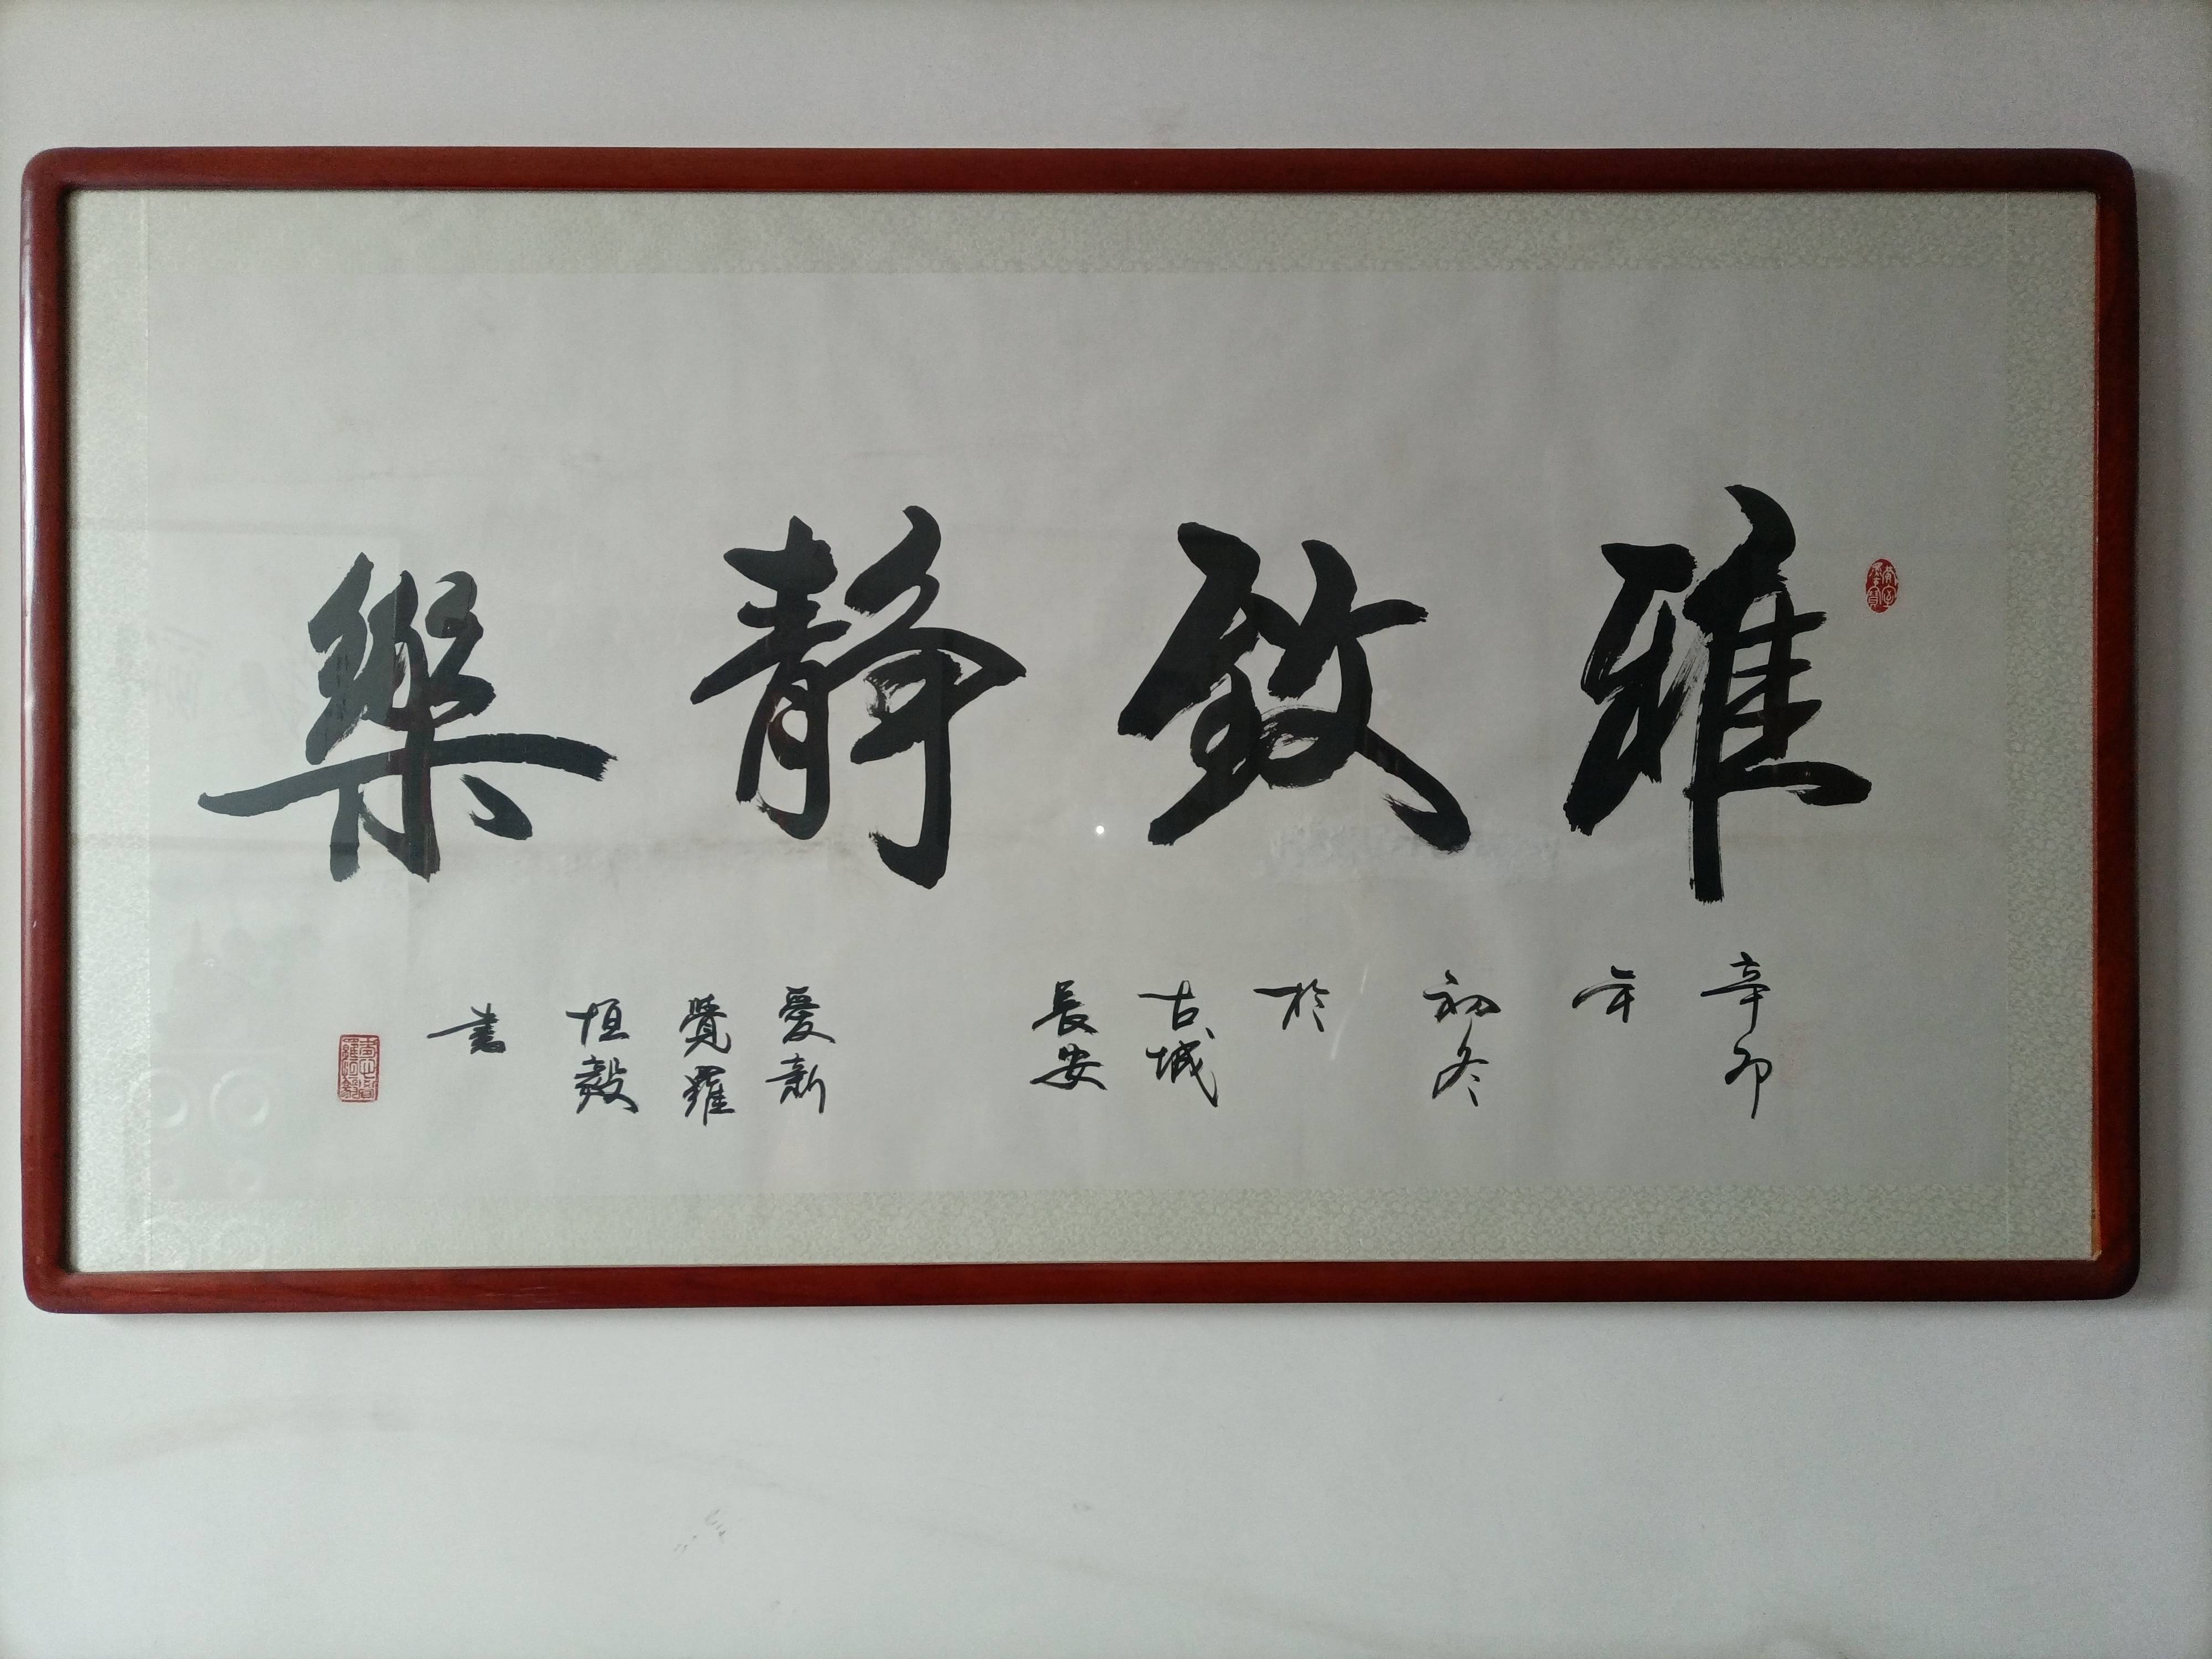 雅致静樂
辛卯
年
初冬
於
古城
長安
愛新
覺羅
恒毅
書